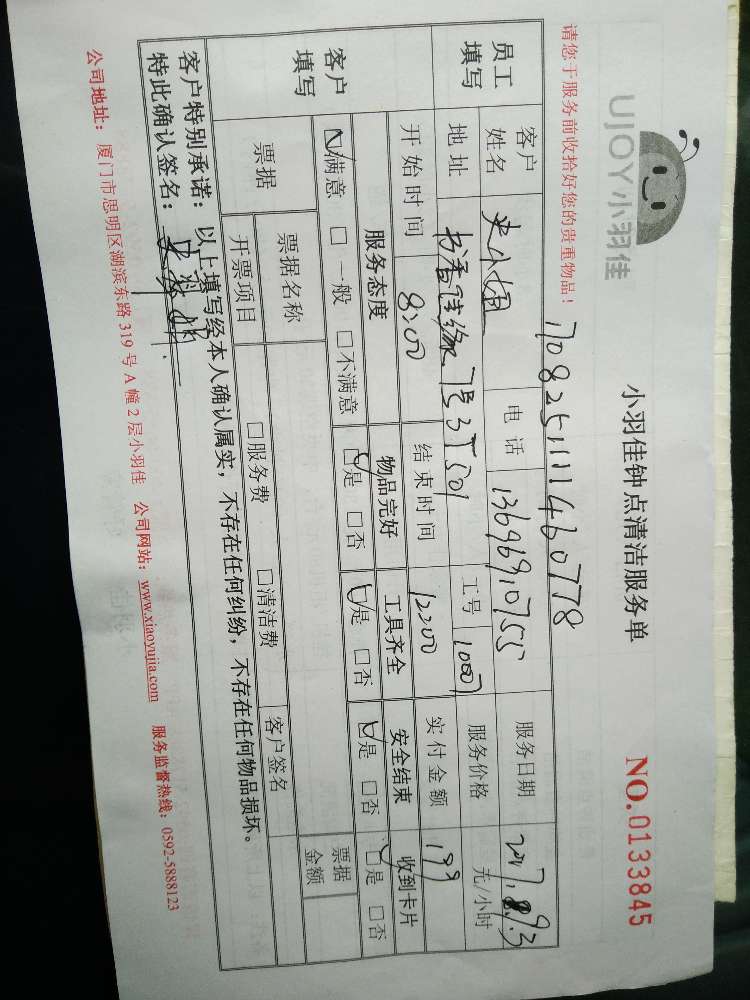 UJOY小羽佳
小羽佳钟点清洁服务单
NO.0133845
170825111460778
请您于服务前收拾好您的贵重物品！
员工填写 客户姓名 史小姐 电话 13696910755 服务日期 2017.9.3
地址 书香佳缘 501 工号 10007 服务价格 元/小时
开始时间 8:00 结束时间 12:00 实付金额 199
客户填写 服务态度 物品完好 工具齐全 安全结束 收到卡片
☑满意 □一般 □不满意 ☑是 □否 ☑是 □否 ☑是 □否 ☑是 □否
票据 票据名称 □服务费 □清洁费 客户签名 票据金额
开票项目
客户特别承诺：以上填写经本人确认属实，不存在任何纠纷，不存在任何物品损坏。
特此确认签名：
公司地址：厦门市思明区湖滨东路319号A幢2层小羽佳 公司网站：www.xiaoyujia.com 服务监督热线：0592-5888123